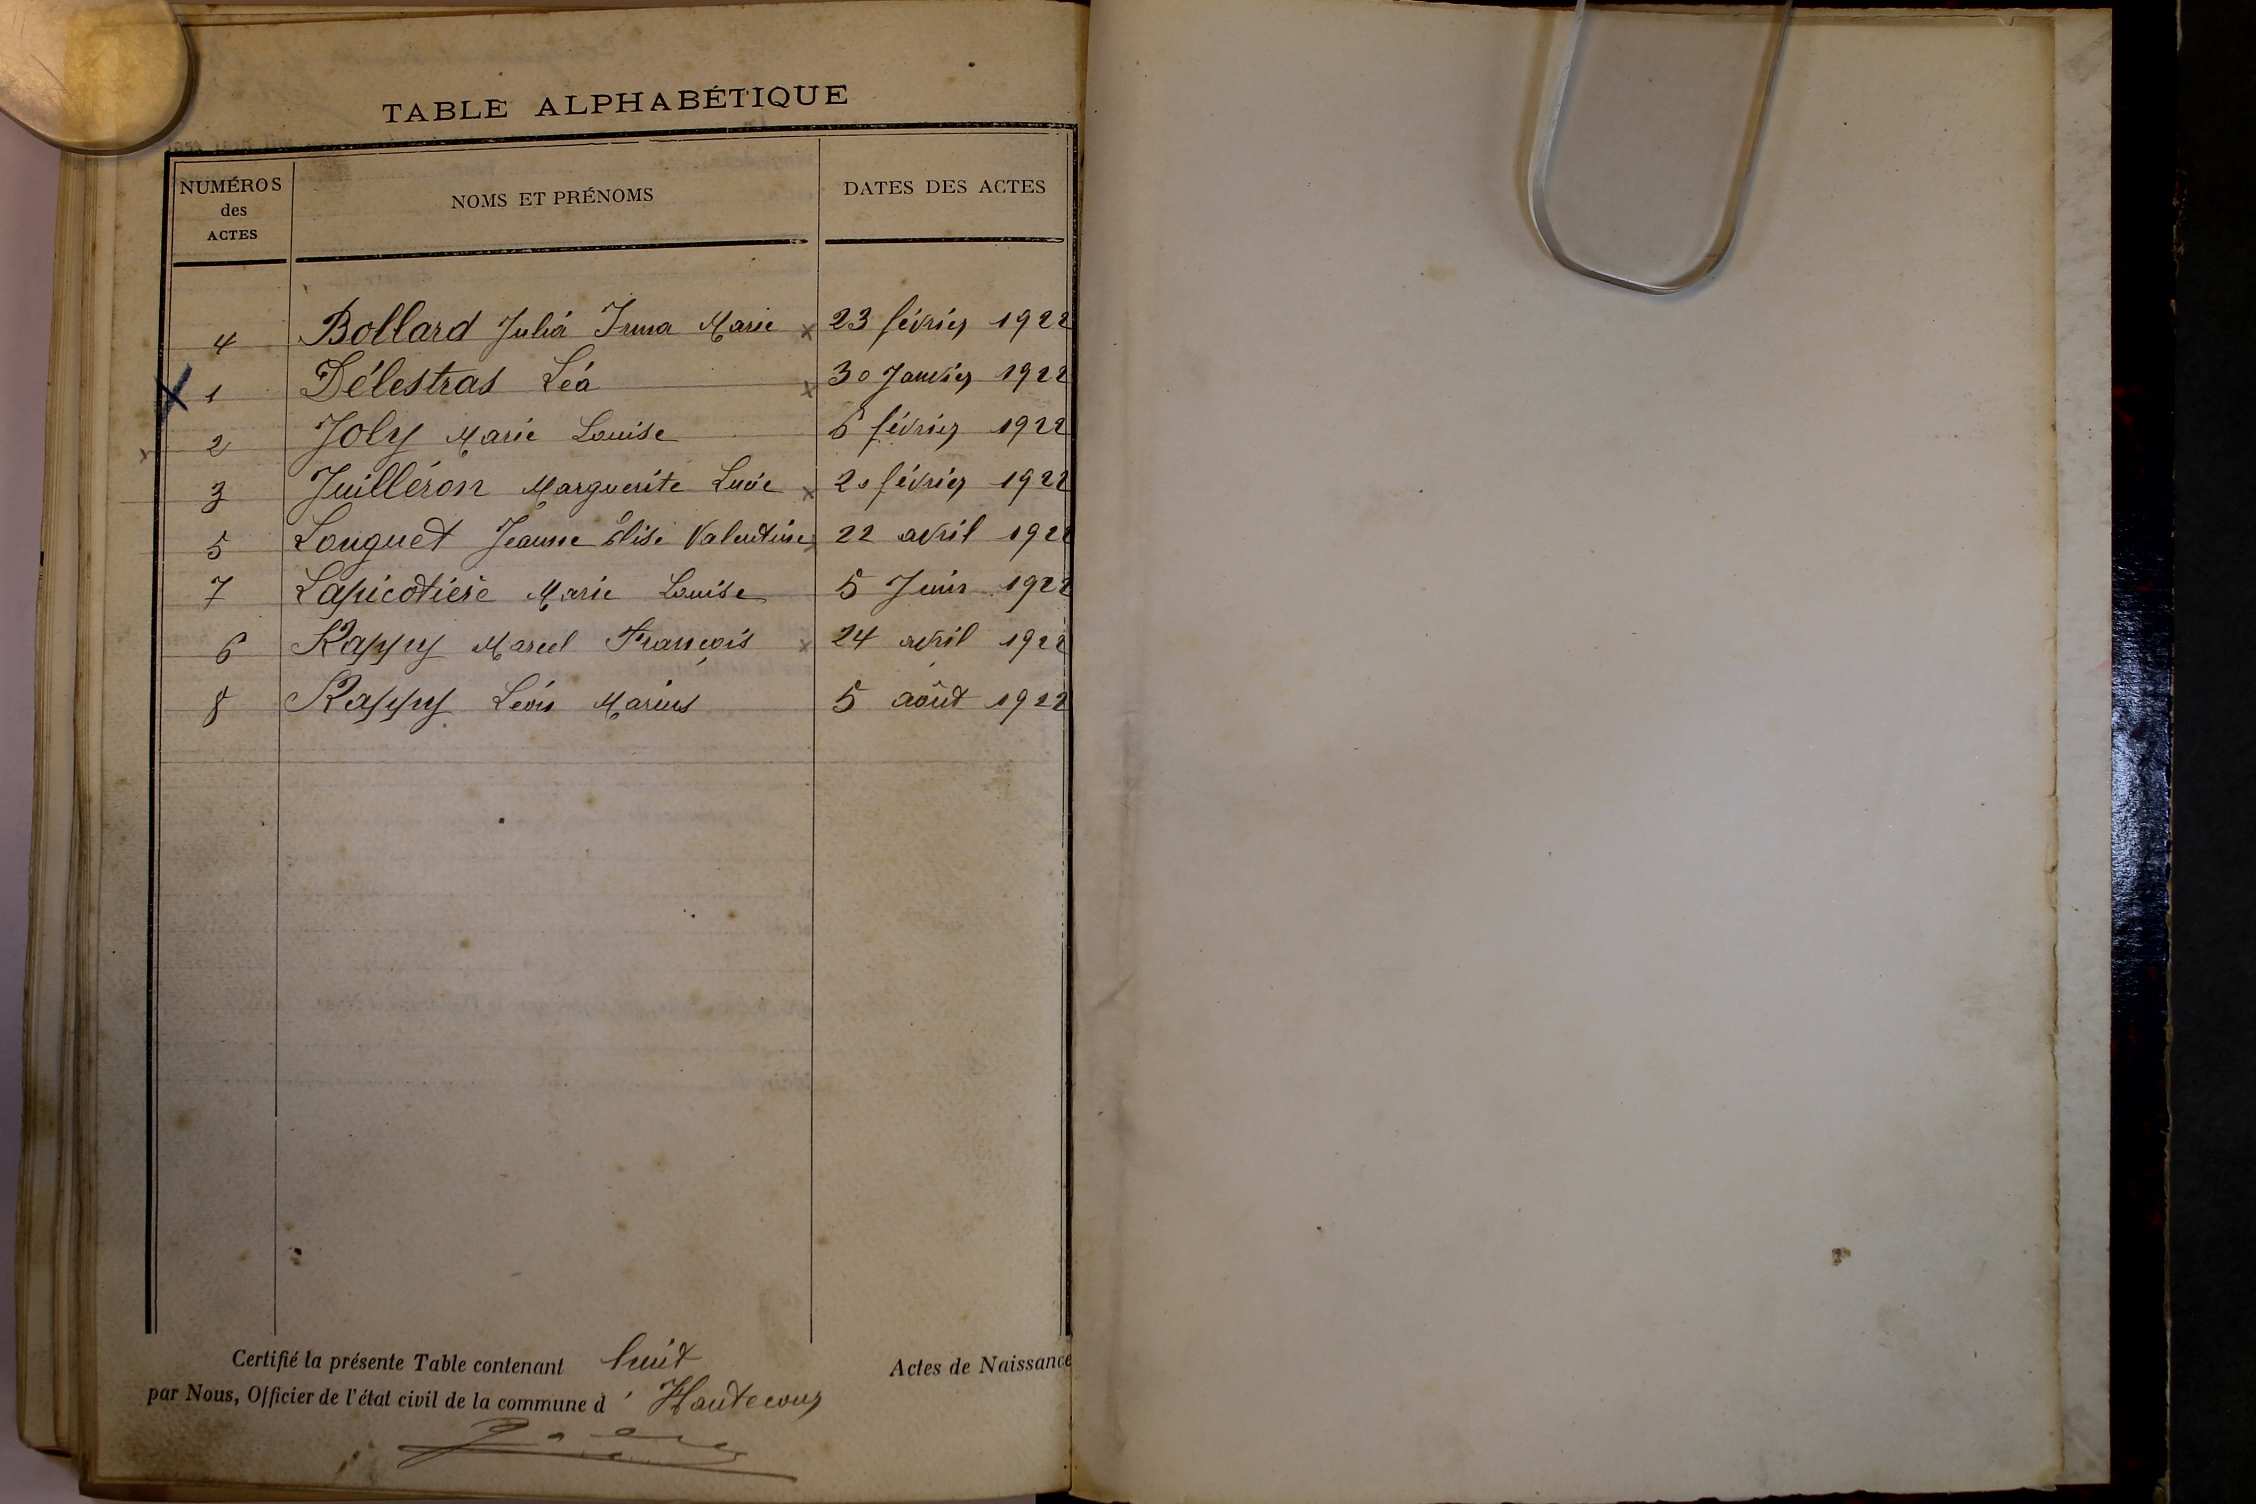 TABLE ALPHABÉTIQUE
NUMÉROS des ACTES NOMS ET PRÉNOMS DATES DES ACTES
4 Bollard Julia Irma Marie x 23 février 1922
1 Délestras Léa x 30 Janvier 1922
2 Joly Marie Louise 6 février 1922
3 Juilléron Marguerite Lucie x 20 février 1922
5 Longuet Jeanne Élise Valentine x 22 avril 1922
7 Lapicotière Marie Louise 5 Juin 1922
6 Rappy Marcel François x 24 avril 1922
8 Rappy Léon Marius 5 août 1922
Certifié la présente Table contenant huit Actes de Naissance
par Nous, Officier de l'état civil de la commune d'Hautecour